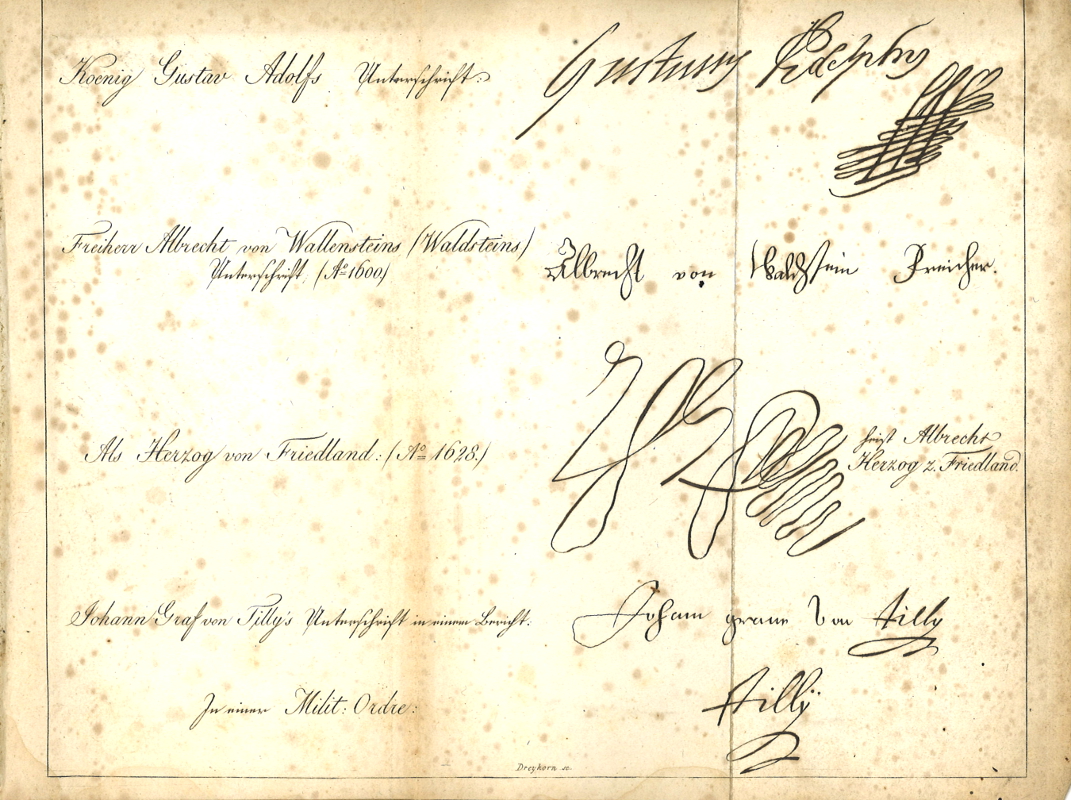 Koenig Gustav Adolfs Unterschrift:
Gustavus Adolphus
Freiherr Albrecht von Wallensteins (Waldsteins)
Unterschrift, (Aº 1600)
Albrecht von Waldstein Freiher.
Als Herzog von Friedland: (Aº 1628.)
heist Albrecht
Herzog z. Friedland.
Johann Graf von Tilly's Unterschrift in einem Bericht:
Johann graue von Tilly
In einer Milit: Ordre:
Tilly
Dreykorn sc.